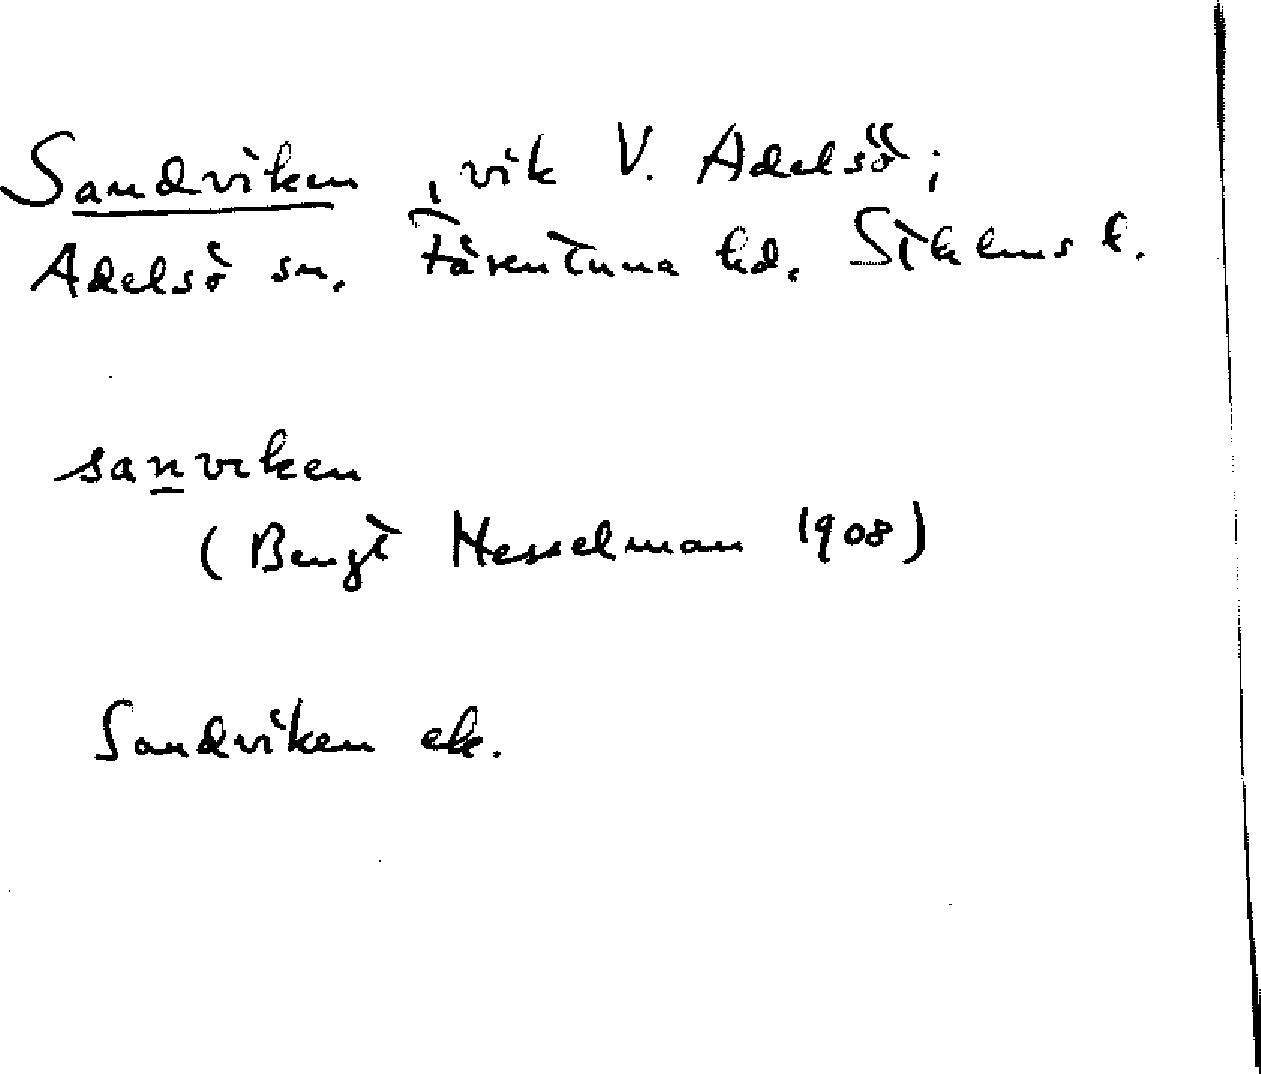 Sandviken, vik V. Adelsö;
Adelsö sn. Färentuna hd. Sthlms l.
sanviken
(Bengt Hesselman 1908)
Sandviken ek.